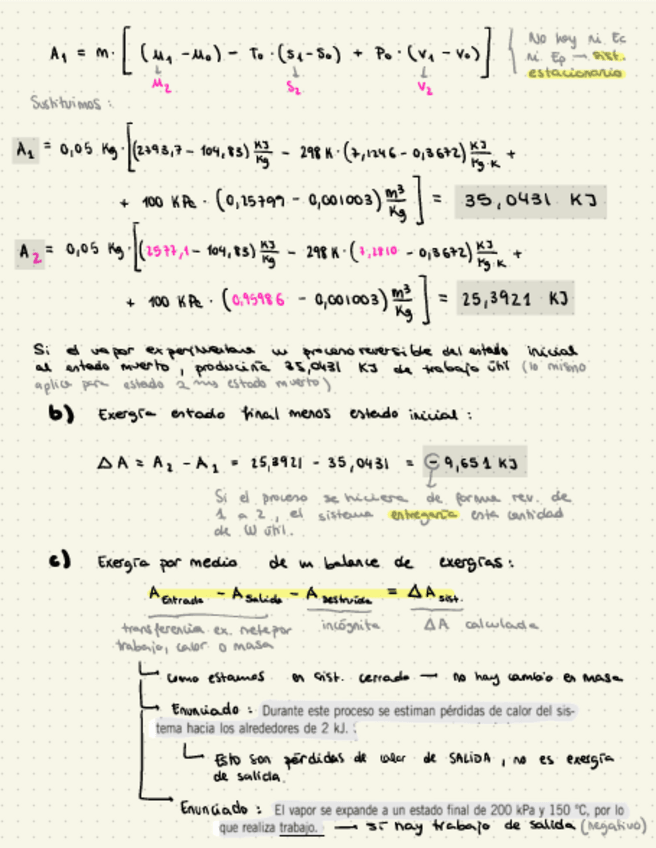 A₁ = m · [ (μ₁ - μ₀) - T₀ · (s₁ - s₀) + P₀ · (v₁ - v₀) ]
μ₂ s₂ v₂
No hay ni Ec
ni Ep → sist.
estacionario
Sustituimos:
A₁ = 0,05 Kg · [ (2793,7 - 104,83) KJ/Kg - 298 K · (7,1246 - 0,3672) KJ/Kg·K +
+ 100 KPa · (0,25799 - 0,001003) m³/Kg ] = 35,0431 KJ
A₂ = 0,05 Kg · [ (2577,1 - 104,83) KJ/Kg - 298 K · (7,2810 - 0,3672) KJ/Kg·K +
+ 100 KPa · (0,95986 - 0,001003) m³/Kg ] = 25,3921 KJ
Si el vapor experimentara un proceso reversible del estado inicial
al estado muerto, produciría 35,0431 KJ de trabajo útil (lo mismo
aplica para estado 2 estado muerto)
b) Exergía estado final menos estado inicial:
ΔA = A₂ - A₁ = 25,3921 - 35,0431 = - 9,651 KJ
Si el proceso se hiciera de forma rev. de
1 a 2, el sistema entregaría esta cantidad
de W útil.
c) Exergía por medio de un balance de exergías:
A Entrada - A Salida - A Destruida = ΔA sist.
transferencia ex. neta por incógnita ΔA calculada
trabajo, calor o masa
Como estamos en sist. cerrado → no hay cambio en masa
Enunciado: Durante este proceso se estiman pérdidas de calor del sis-
tema hacia los alrededores de 2 kJ.
Esto son pérdidas de calor de SALIDA, no es exergía
de salida.
Enunciado: El vapor se expande a un estado final de 200 kPa y 150 °C, por lo
que realiza trabajo. → sí hay trabajo de salida (negativo)